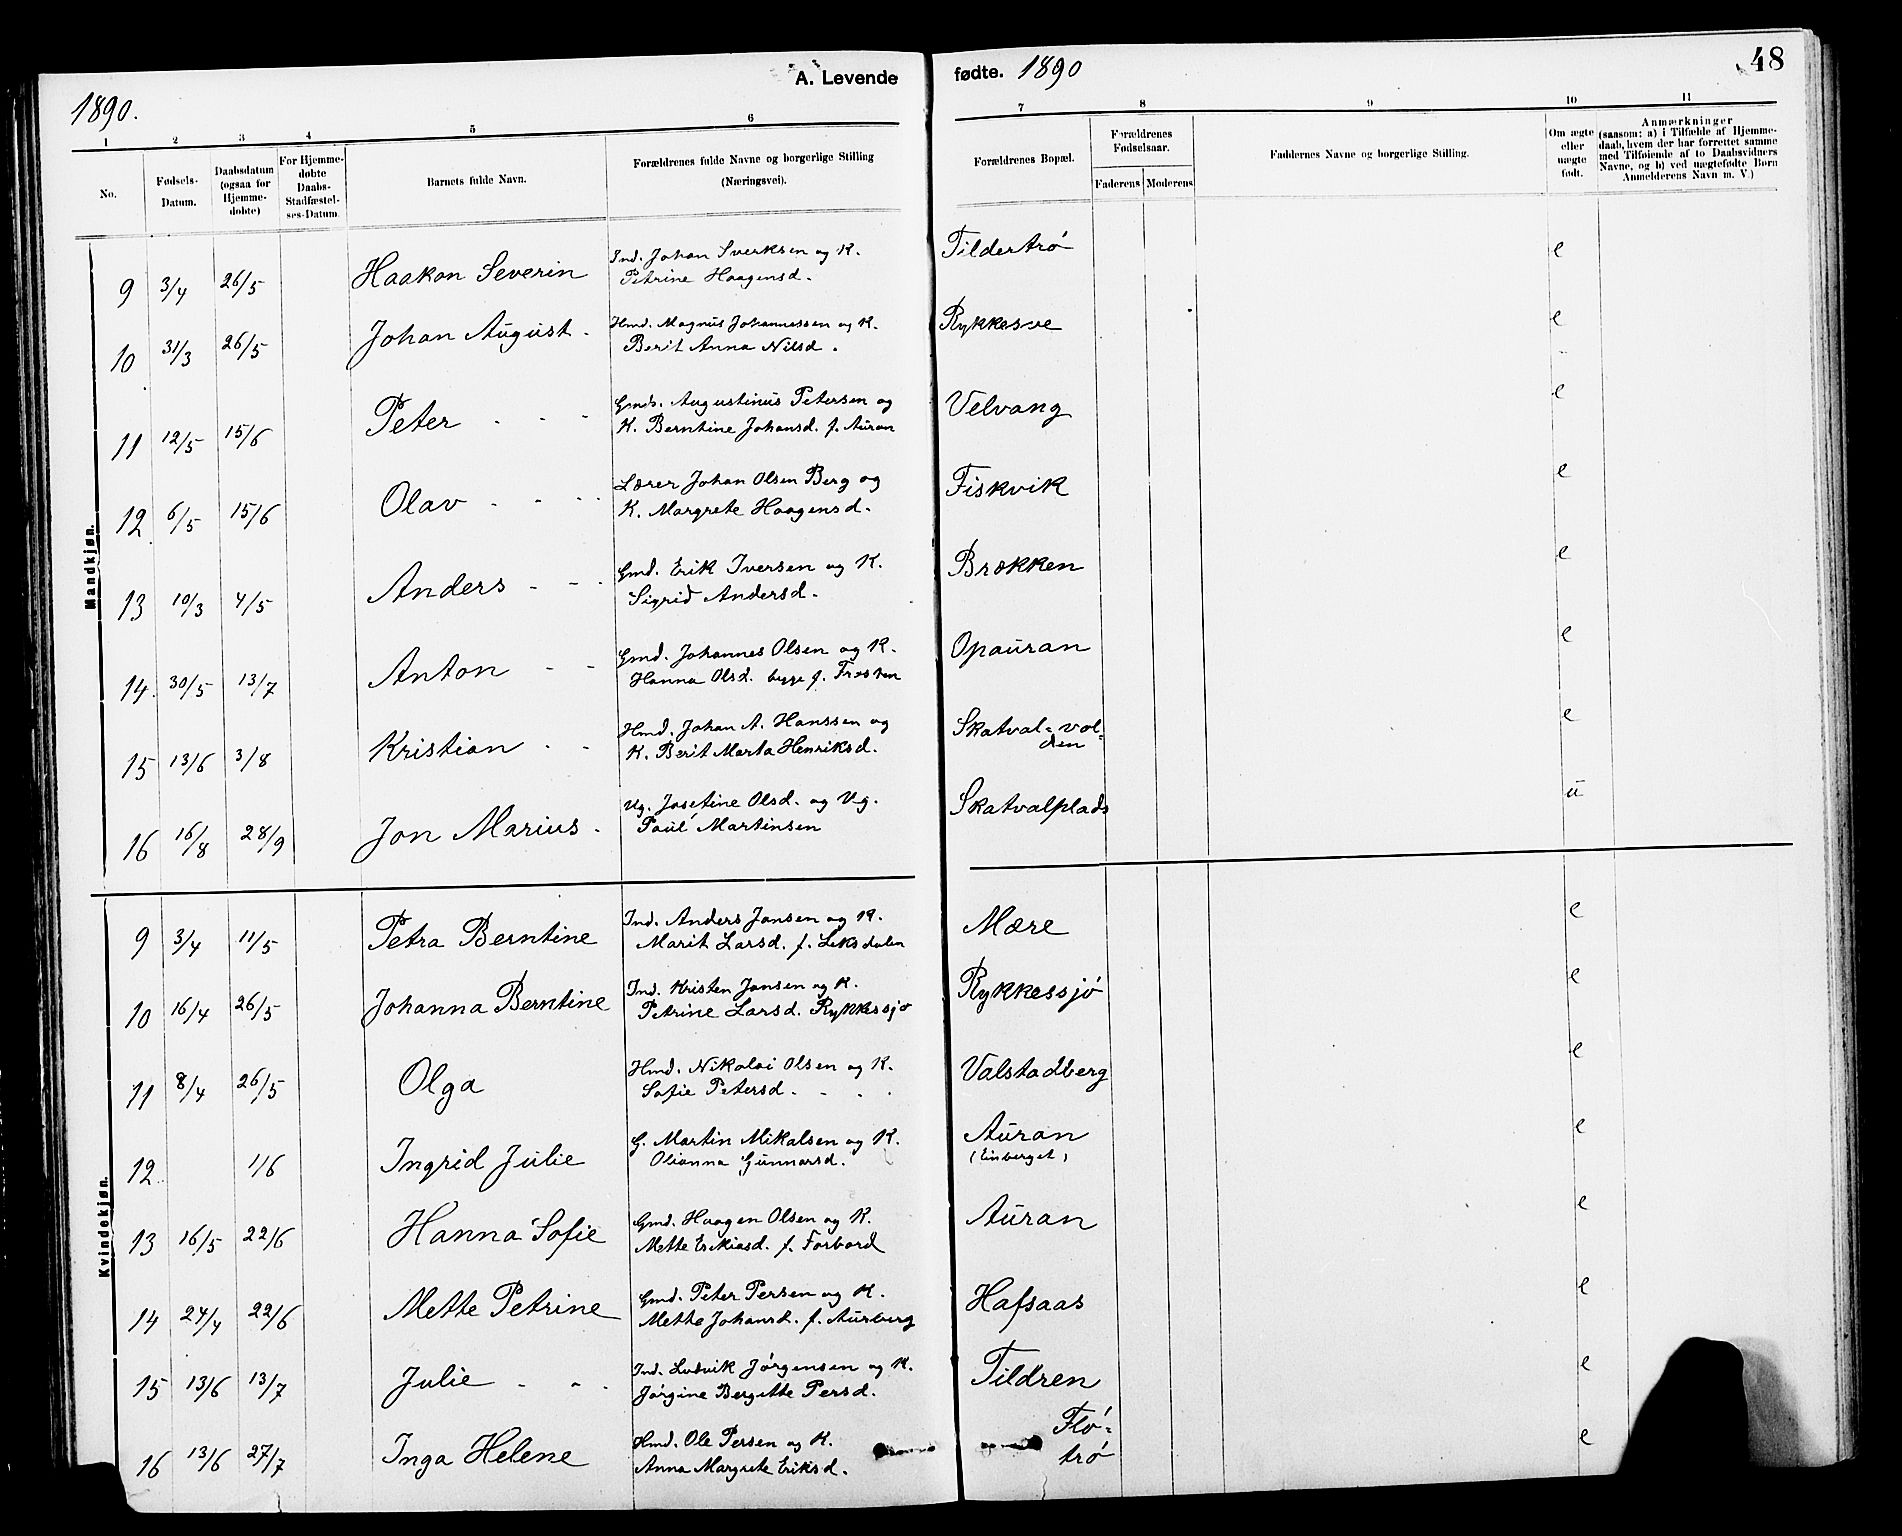 A. Levende fødte. 1890 48
1890.
1 2 3 4 5 6 7 8 9 10 11
No. Fødsels-Datum. Daabsdatum (ogsaa for Hjemme-døbte) For Hjemme-døbte Daabs-Stadfæstel-ses-Datum. Barnets fulde Navn. Forældrenes fulde Navne og borgerlige Stilling (Næringsvei). Forældrenes Bopæl. Forældrenes Fødselsaar. Faderens Moderens Faddernes Navne og borgerlige Stilling. Om ægte eller uægte født. Anmærkninger (saasom: a) i Tilfælde af Hjemme-daab, hvem der har forrettet samme med Tilføiende af to Daabsvidners Navne, og b) ved uægtefødte Børn Anmelderens Navn m. V.)
Mandkjøn.
9 3/4 26/5 Haakon Severin Ind. Johan Sverksen og K. Tildertrø e
Petrine Haagensd.
10 31/3 26/5 Johan August - Hmd. Magnus Johannessen og K. Rykkesve e
Berit Anna Nilsd.
11 12/5 15/6 Peter - - - Gmds. Augustinus Petersen og Velvang e
K. Berntine Johansd. f. Auran
12 6/5 15/6 Olav - - - - Lærer Johan Olsen Berg og Fiskvik e
K. Margrete Haagensd.
13 10/3 4/5 Anders - - - Gmd. Erik Iversen og K. Brækken e
Sigrid Andersd.
14. 30/5 13/7 Anton - - Gmd. Johannes Olsen og K. Opauran e
Hanna Olsd. begge f. Frosten
15 13/6 3/8 Kristian - - Hmd. Johan A. Hanssen og Skatval=vol= e
K. Berit Marta Henriksd. den
16 16/8 28/9 Jon Marius - Ug. Josefine Olsd. og Ug. Skatvalplads u
Paul Martinsen
Kvindekjøn.
9 3/4 11/5 Petra Berntine Ind. Anders Jansen og K. Mære e
Marit Larsd. f. Leksdalen
10 16/4 26/5 Johanna Berntine Ind. Kristen Jansen og K. Rykkessjø e
Petrine Larsd. Rykkessjø
11 8/4 26/5 Olga Hmd. Nikolai Olsen og K. Valstadberg e
Sofie Petersd. - - -
12. 1/6 Ingrid Julie G. Martin Mikalsen og K. Auran e
Olianna Gunnarsd. (Einberget)
13 16/5 22/6 Hanna Sofie Gmd. Haagen Olsen og K. Auran e
Mette Erikiasd. f. Forbord
14 24/4 22/6 Mette Petrine Gmd. Peter Persen og K. Hafsaas e
Mette Johansd. f. Aurberg
15 13/6 13/7 Julie - - - Ind. Ludvik Jørgensen og K. Tildren e
Jørgine Bergitte Persd.
16 13/6 27/7 Inga Helene Hmd. Ole Persen og K. Flø= e
Anna Margrete Eriksd. trø